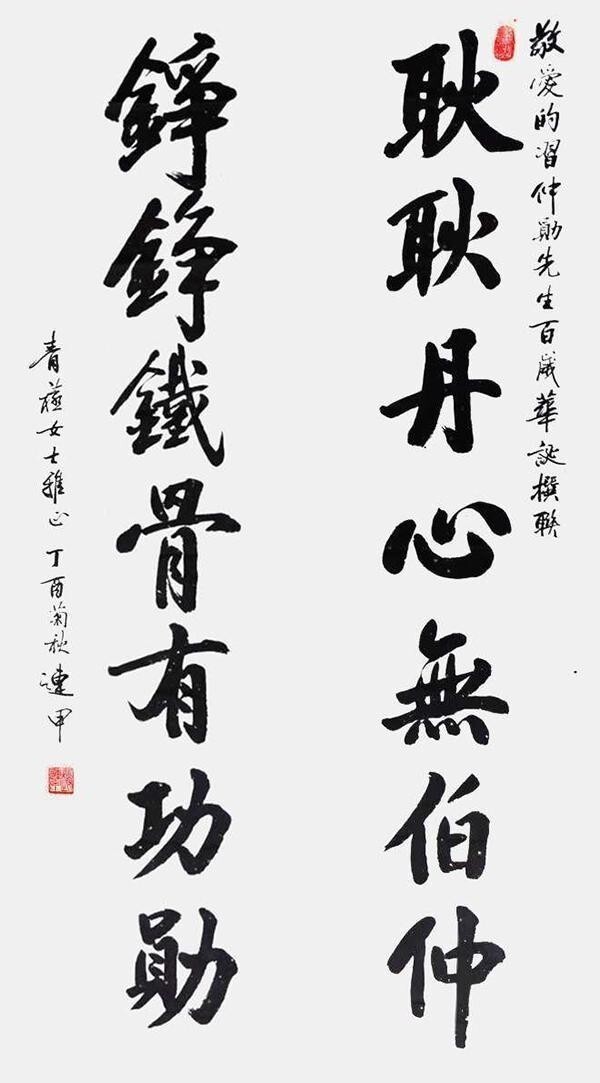 敬愛的習仲勛先生百歲華誕撰聯
耿耿丹心無伯仲
錚錚鐵骨有功勛
青薇女士雅正 丁酉菊秋 連甲